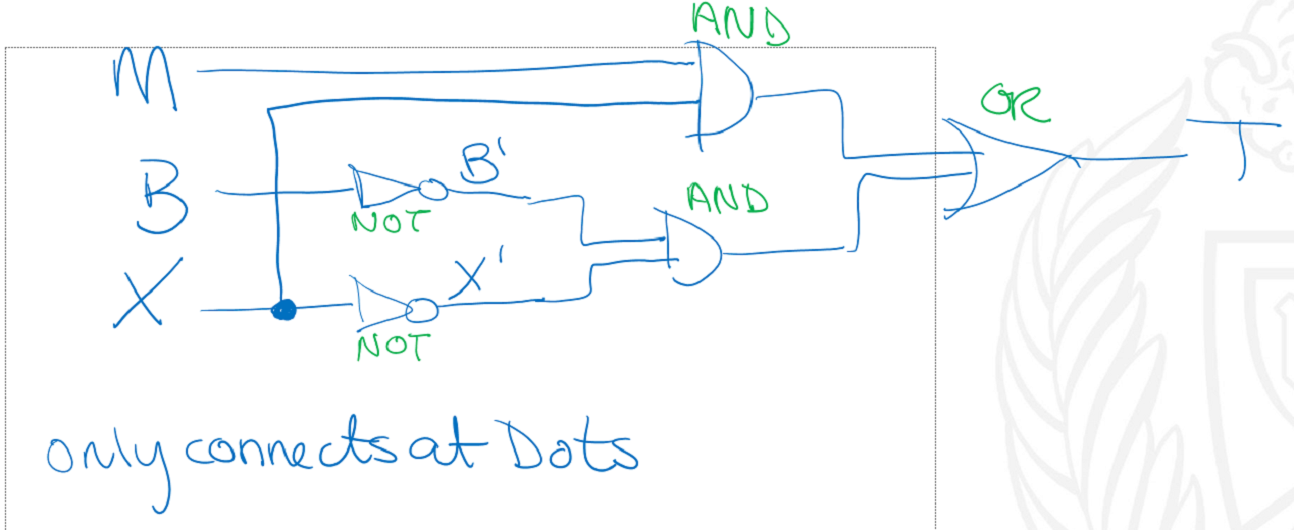 AND
M
OR
T
B
B'
NOT
AND
X
X'
NOT
only connects at Dots